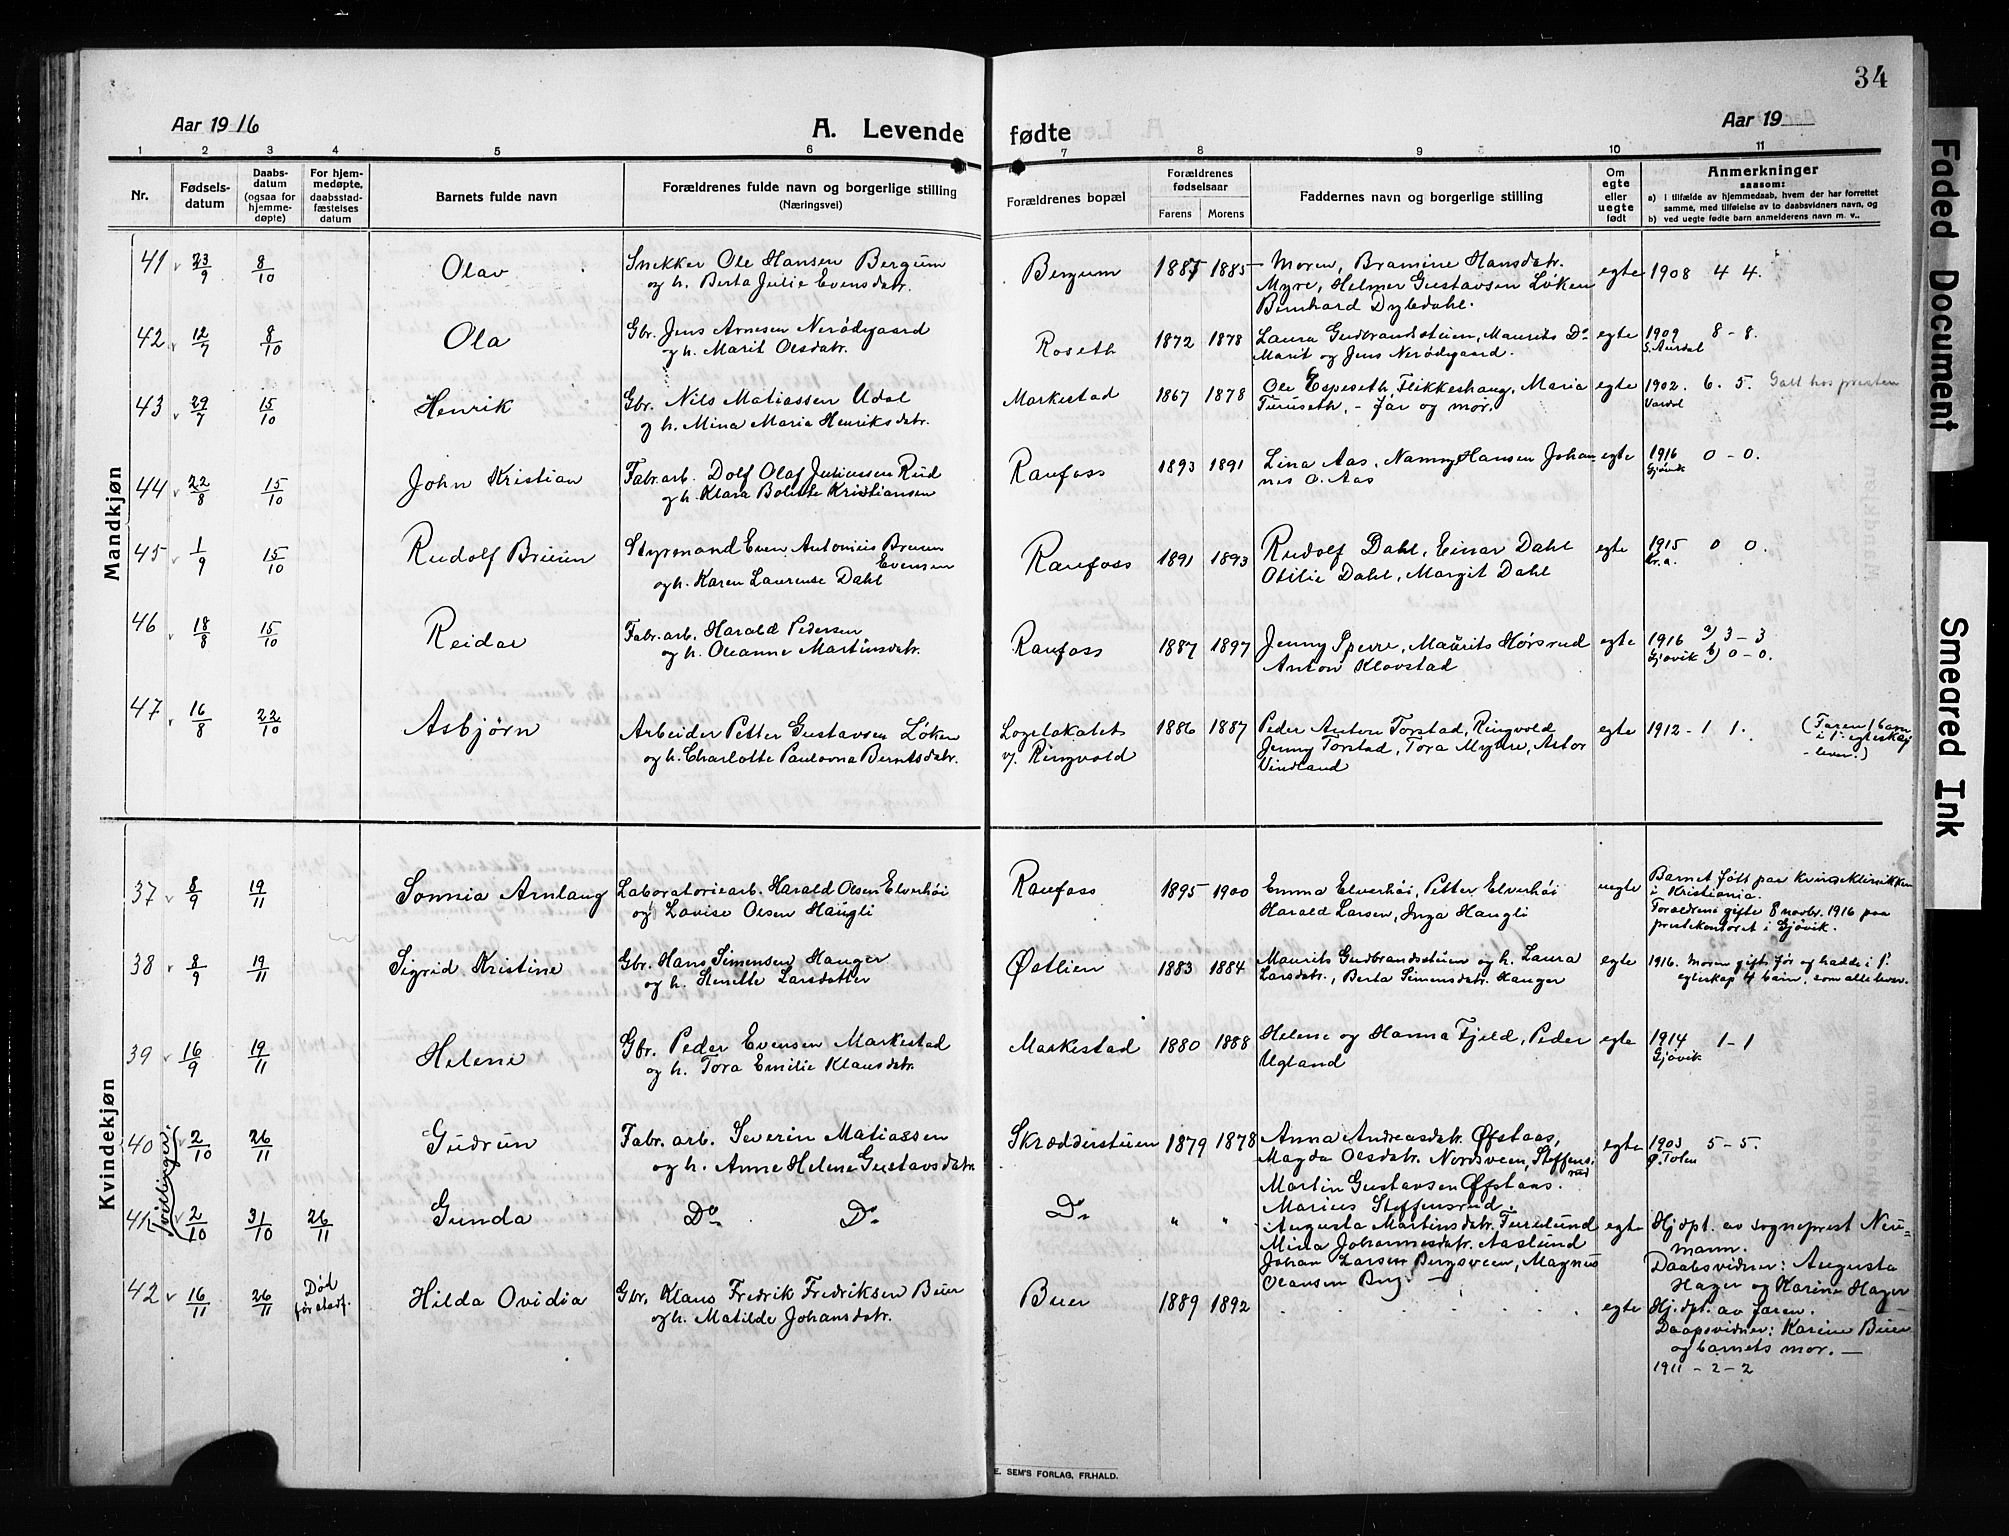 34
Aar 1916
A. Levende fødte
Aar 19
1 2 3 4 5 6 7 8 9 10 11
Nr.
Fødsels-
datum
Daabs-
datum
(ogsaa for
hjemme-
døpte)
For hjem-
medøpte,
daabsstad-
fæstelses
datum
Barnets fulde navn
Forældrenes fulde navn og borgerlige stilling
(Næringsvei)
Forældrenes bopæl
Forældrenes
fødselsaar
Farens Morens
Faddernes navn og borgerlige stilling
Om
egte
eller
uegte
født
Anmerkninger
saasom:
a) i tilfælde av hjemmedaab, hvem der har forrettet
samme, med tilføielse av to daabsvidners navn, og
b) ved uegte fødte barn anmelderens navn m. v..
Mandkjøn
41 23/9 8/10 Olav
Snekker Ole Hansen Bergum
og h. Berta Julie Evensdatr.
Bergum 1885 1885
Moren, Bramine Hansdatr.
Myre, Helmer Gustavsen Løken
Bernhard Dybdahl.
egte 1908 4 4.
42 12/7 8/10 Ola
Gbr. Jens Arnesen Nerødegaard
og h. Marit Olsdatr.
Roseth 1872 1878
Laura Gudbrandsstuen, Maurits Do
Marit og Jens Nerødegaard.
egte 1909 8 - 8.
S. Aurdal
43 29/7 15/10 Henrik
Gbr. Nils Matiassen Udal
og h. Mina Maria Henriksdatr.
Markestad 1867 1878
Ole Espeseth Flikkeshaug, Maria
Turuseth, - far og mor.
egte 1902. 6. 5. Galt hos presten
Vardal
44 22/8 15/10 John Kristian
Fabr.arb. Dolf Olaf Juliussen Rud
og h. Klara Bolette Kristiansen
Raufoss 1893 1891
Lina Aas, Nanny Hansen Johan-
nes O. Aas
egte 1916 0 - 0.
Gjøvik
45 1/9 15/10 Rudolf Bruun
Styrmand Even Antonius Bruun
Evensen
og h. Karen Laurense Dahl
Raufoss 1891 1893
Rudolf Dahl, Einar Dahl
Otilie Dahl, Margit Dahl
egte 1915 0 0.
Kr.a.
46 18/8 15/10 Reidar
Fabr.arb. Harald Pedersen
og h. Oleanne Martinsdatr.
Raufoss 1887 1897
Jenny Sperre, Maurits Hørsrud
Anton Klovstad
egte 1916 a) 3 - 3
Gjøvik b) 0 - 0.
47 16/8 22/10 Asbjørn
Arbeider Petter Gustavsen Løken
og h. Charlotte Paulovna Berntsdatr.
Logelokalets
v/. Ringvold
1886 1887
Peder Anton Torstad, Ringvold
Jenny Torstad, Tora Myhre, Astor
Vindland
egte 1912 - 1 1.
(Faren 1 barn
i 1. egteskap
- lever.)
Kvindekjøn
37 8/9 19/11 Sonnia Arnlaug
Laboratoriearb. Harald Olsen Elverhøi
og Lovise Olsen Haugli
Raufoss 1895 1900
Emma Elverhøi, Petter Elverhøi
Harald Larsen, Inga Haugli
uegte
Barnet født paa kvindeklinikken
i Kristiania.
Forældrene gifte 8 novbr. 1916 paa
prestekontoret i Gjøvik.
38 8/9 19/11 Sigrid Kristine
Gbr. Hans Simensen Hauger
og h. Henette Larsdatter
Østlien 1883 1884
Maurits Gudbrandsstuen og h. Laura
Larsdatr., Berta Simensdatr. Hauger
egte
1916. Moren gift før og hadde i 1.
egteskap 4 barn, som alle lever.
39 16/9 19/11 Helene
Gbr. Peder Evensen Markestad
og h. Tora Emilie Klausdatr.
Markestad 1880 1888
Helene og Hanna Fjeld, Peder
Ugland
egte 1914 1 - 1
Gjøvik
(tvillinger)
40 2/10 26/11 Gudrun
Fabr. arb. Severin Matiassen
og h. Anne Helene Gustavsdatr.
Skrædderstuen 1879 1878
Anna Andreasdatr. Øfstaas,
Magda Olesdatr. Nordsveen, Steffens-
rud
Martin Gustavsen Øfstaas.
Marius Steffensrud.
egte 1903 5 - 5.
Ø. Toten
41 2/10 31/10 26/11 Gunda
Do Do Do " "
Augusta Martinsdatr. Turulund
Mina Johannesdatr. Aaslund
Johan Larsen Bergsveen, Magnus
Olausen Brg.
egte
Hj.dpt. av sogneprest Neu-
mann.
Daabsvidner: Augusta
Hager og Karine Hager
42 16/11 26/11 Død
før stadf.
Hilda Ovidia
Gbr. Klaus Fredrik Fredriksen Buer
og h. Matilde Johansdatr.
Buer 1889 1892
egte
Hj.dpt. av faren.
Daapsvidner: Karine Buer
og barnets mor. -
1911 - 2 - 2
E. SEM'S FORLAG, FR.HALD.
Faded Document
Smeared Ink